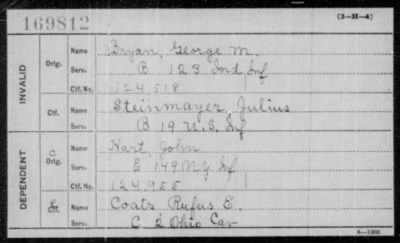 169812
(3-H-4)
INVALID
Orig.
Name Bryan, George M.
Serv. B 123 Ind Inf
Ctf. No. 124,518
Ctf.
Name Steinmayer, Julius
Serv. B 19 U.S. Inf
DEPENDENT
Orig.
Name Hart, John
Serv. E 149 NY Inf
Ctf. No. 124,955
Ctf.
Name Coats Rufus E.
Serv. C 2 Ohio Cav